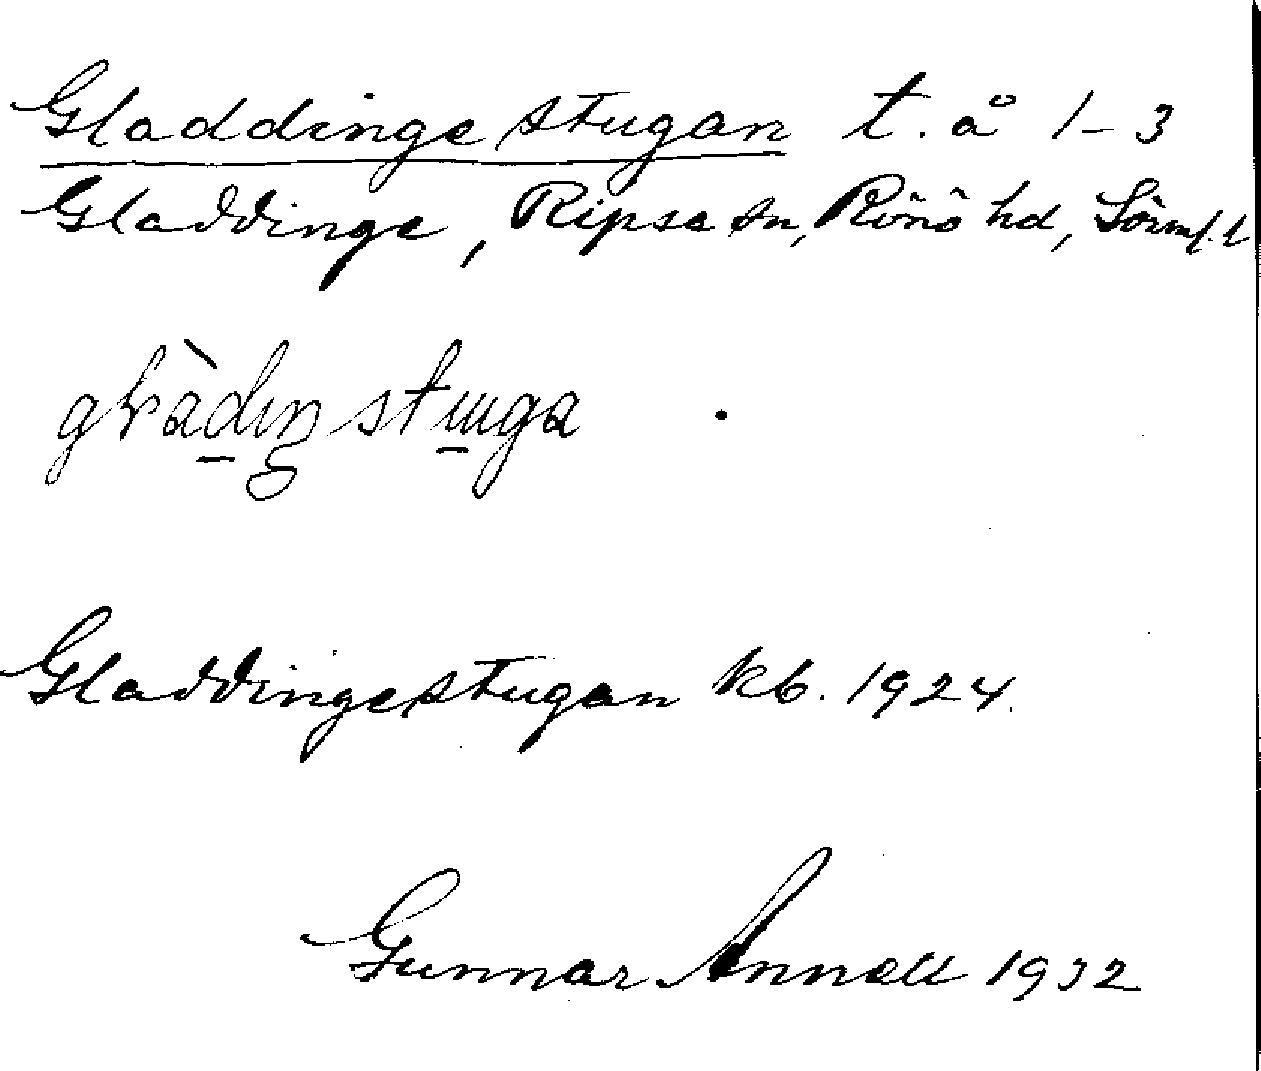 Gladdingestugan t. å 1–3
Gladdinge, Ripsa sn, Rönö hd, Sörml. l
Gladdingestugan kb. 1924.
Gunnar Annell 1932